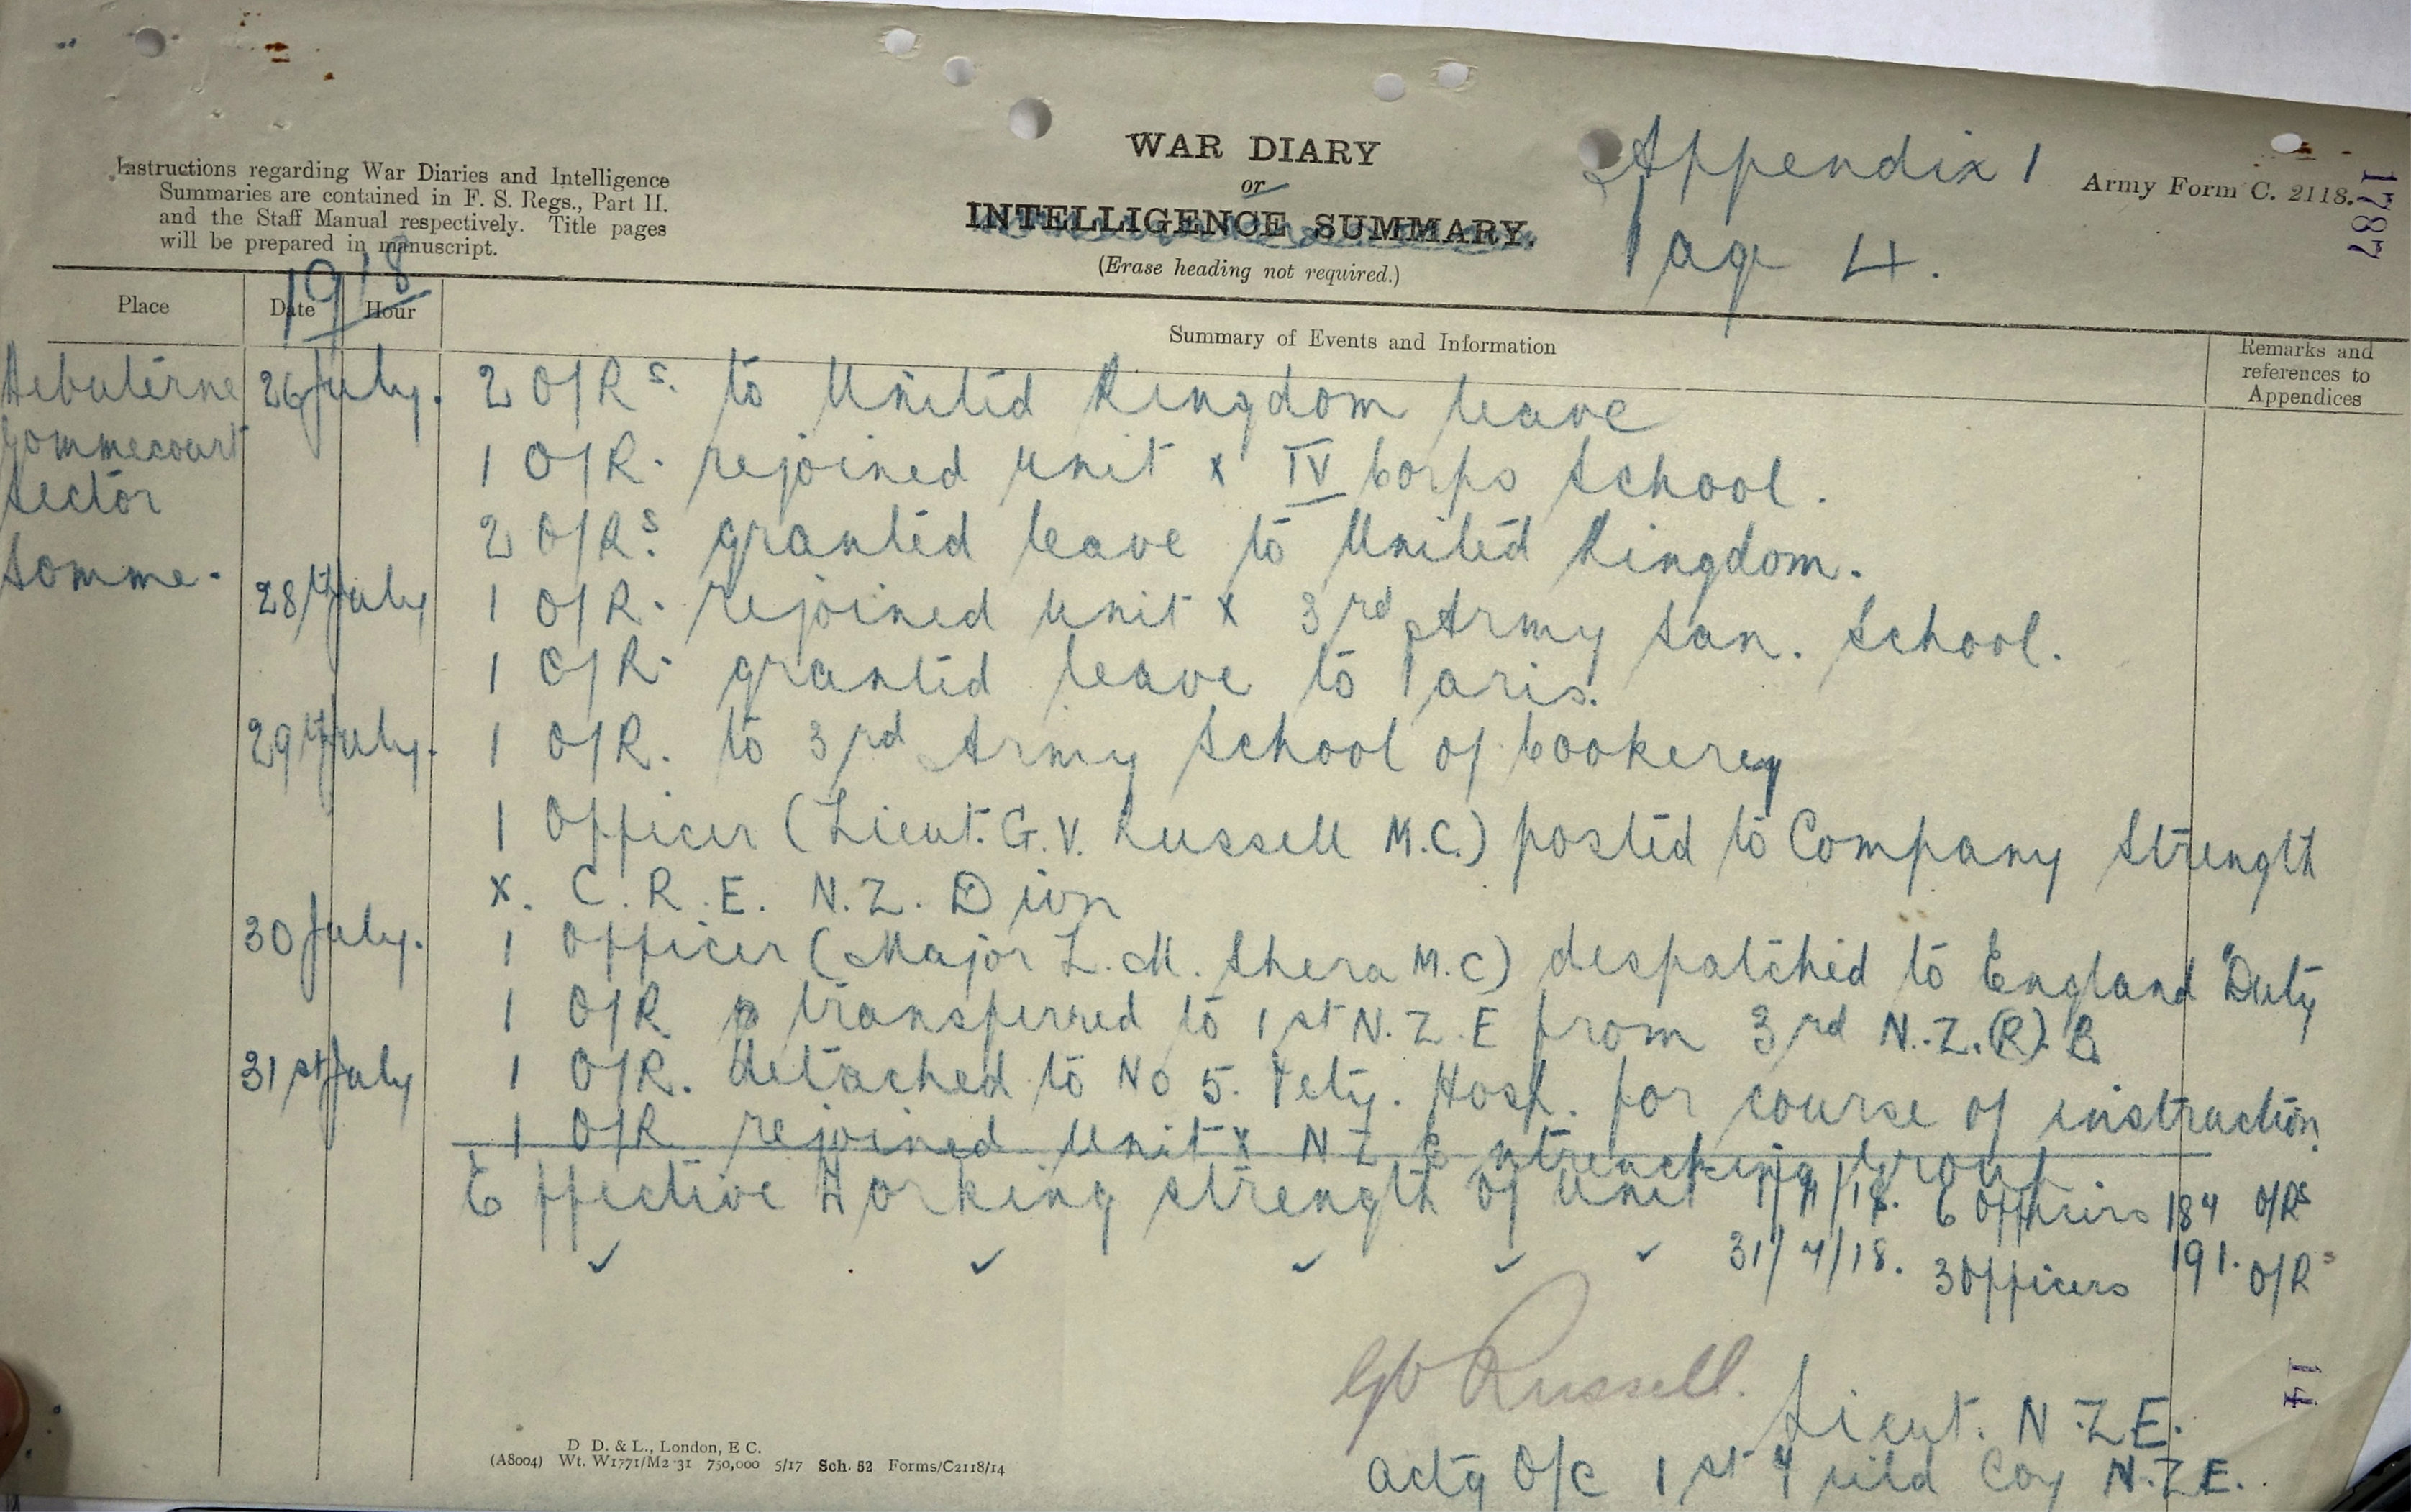 Instructions regarding War Diaries and Intelligence
Summaries are contained in F. S. Regs., Part II.
and the Staff Manual respectively. Title pages
will be prepared in manuscript.
WAR DIARY
or
INTELLIGENCE SUMMARY.
(Erase heading not required.)
Appendix 1
Page 4.
Army Form C. 2118.
1787
1918
Place
Date
Hour
Summary of Events and Information
Remarks and
references to
Appendices
Hebuterne
Gommecourt
Sector
Somme.
26 July. 2 O/Rs. to United Kingdom leave
1 O/R. rejoined unit x IV Corps School.
2 O/Rs. granted leave to United Kingdom.
28th July 1 O/R. rejoined unit x 3rd Army San. School.
1 O/R. granted leave to Paris.
29th July. 1 O/R. to 3rd Army School of Cookerey
1 Officer (Lieut. G. V. Russell M.C.) posted to Company Strength
x. C. R. E. N.Z. Divn
30 July. 1 Officer (Major L. M. Shera M.C) despatched to England Duty
1 O/R transferred to 1st N.Z.E from 3rd N.Z.(R).B
31st July 1 O/R. detached to No 5. Vety. Hosp. for course of instruction.
1 O/R rejoined Unit x N Z Entrenching Group
Effective Working strength of Unit 1/7/18. 6 Officers 184 O/Rs
✓ ✓ ✓ ✓ ✓ 31/7/18. 3 Officers 191. O/Rs
GV Russell.
Lieut. N.Z.E.
actg O/C 1st Field Coy N.Z.E.
14
D D. & L., London, E C.
(A8004) Wt. W1771/M2 31 750,000 5/17 Sch. 52 Forms/C2118/14